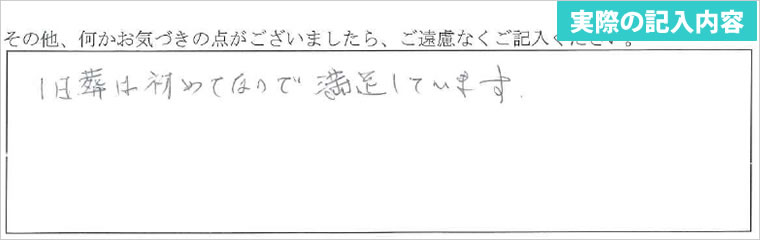 実際の記入内容
その他、何かお気づきの点がございましたら、ご遠慮なくご記入ください。
1日葬は初めてなので満足しています.